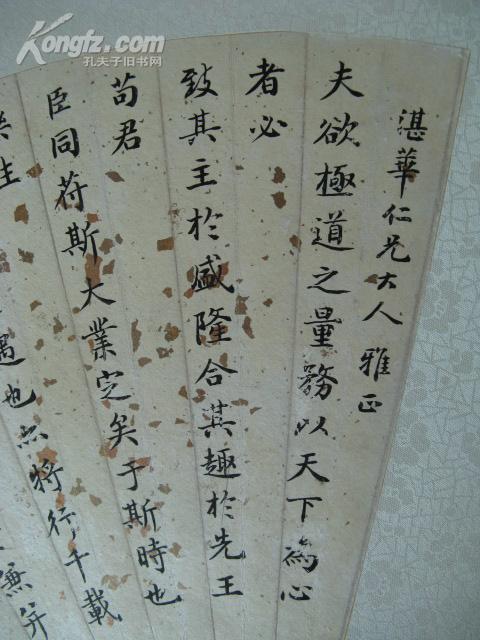 Kongfz.com
孔夫子旧书网
湛華仁兄大人 雅正
夫欲極道之量務以天下為心
者必
致其主於盛隆合其趣於先王
苟君
臣同苻斯大業定矣于斯時也
生
遇也亦將行千載
兼并